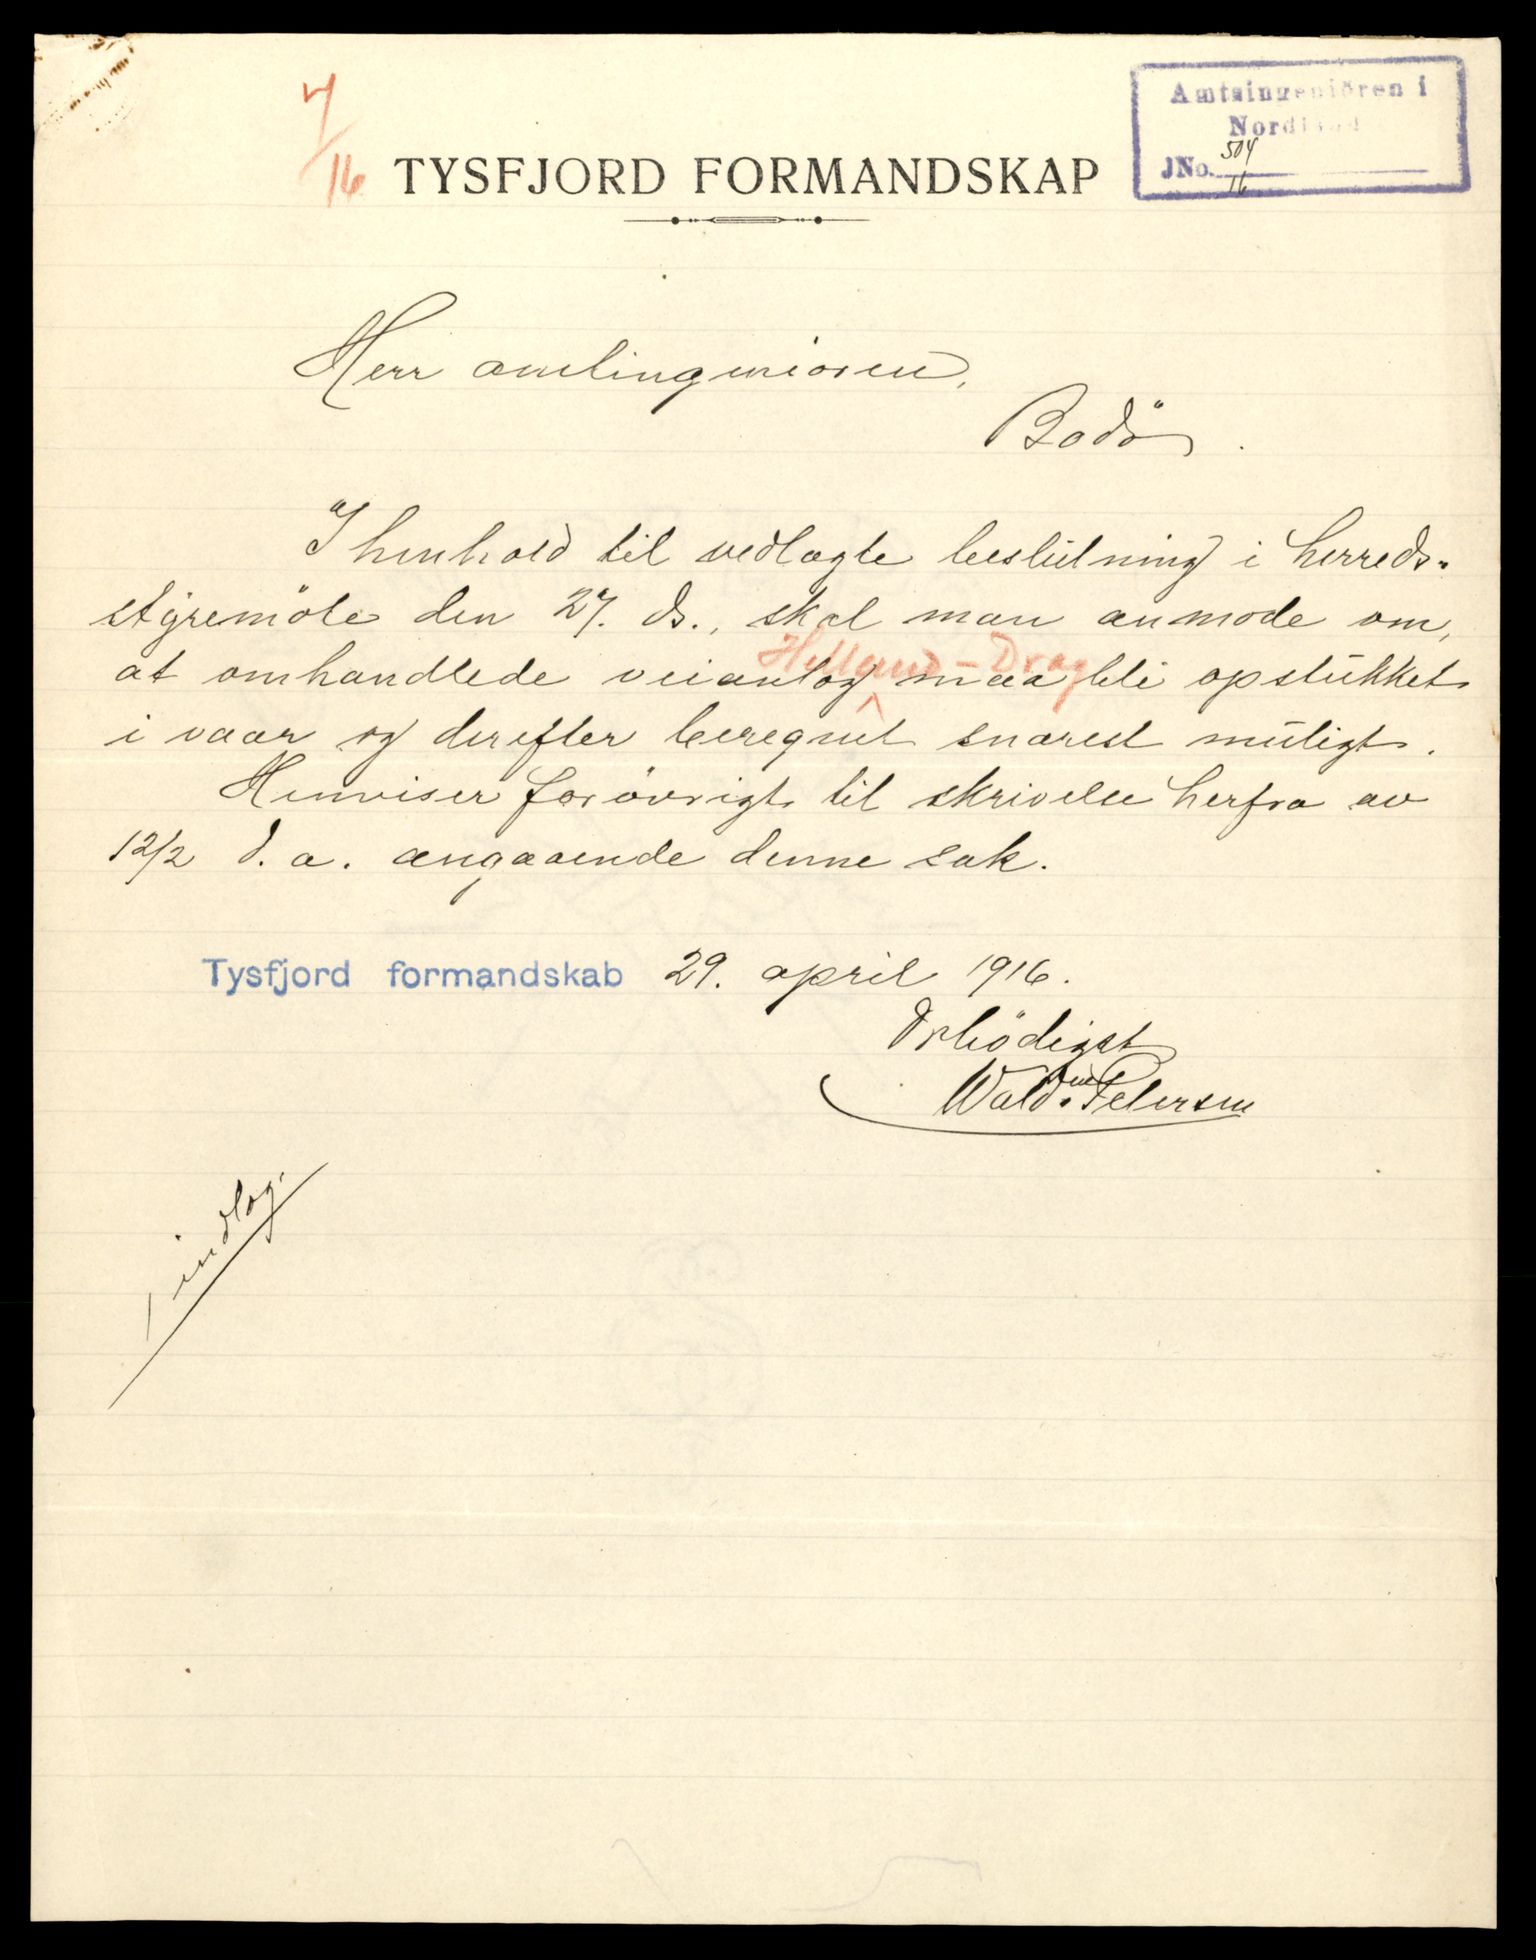 7/16
TYSFJORD FORMANDSKAP
Amtsingeniören i
Nordland
JNo. 504/16
Herr amtingeniøren,
Bodö.
I henhold til vedlagte beslutning i herreds-
styremöte den 27. ds., skal man anmode om,
at omhandlede veianlæg Helland – Drag maa bli opstukket
i vaar og derefter beregnet snarest muligt.
Henviser forövrigt til skrivelse herfra av
12/2 d. a. angaaende denne sak.
Tysfjord formandskab 29. april 1916.
Ærbödigst
Wald. Petersen
1 indlæg.